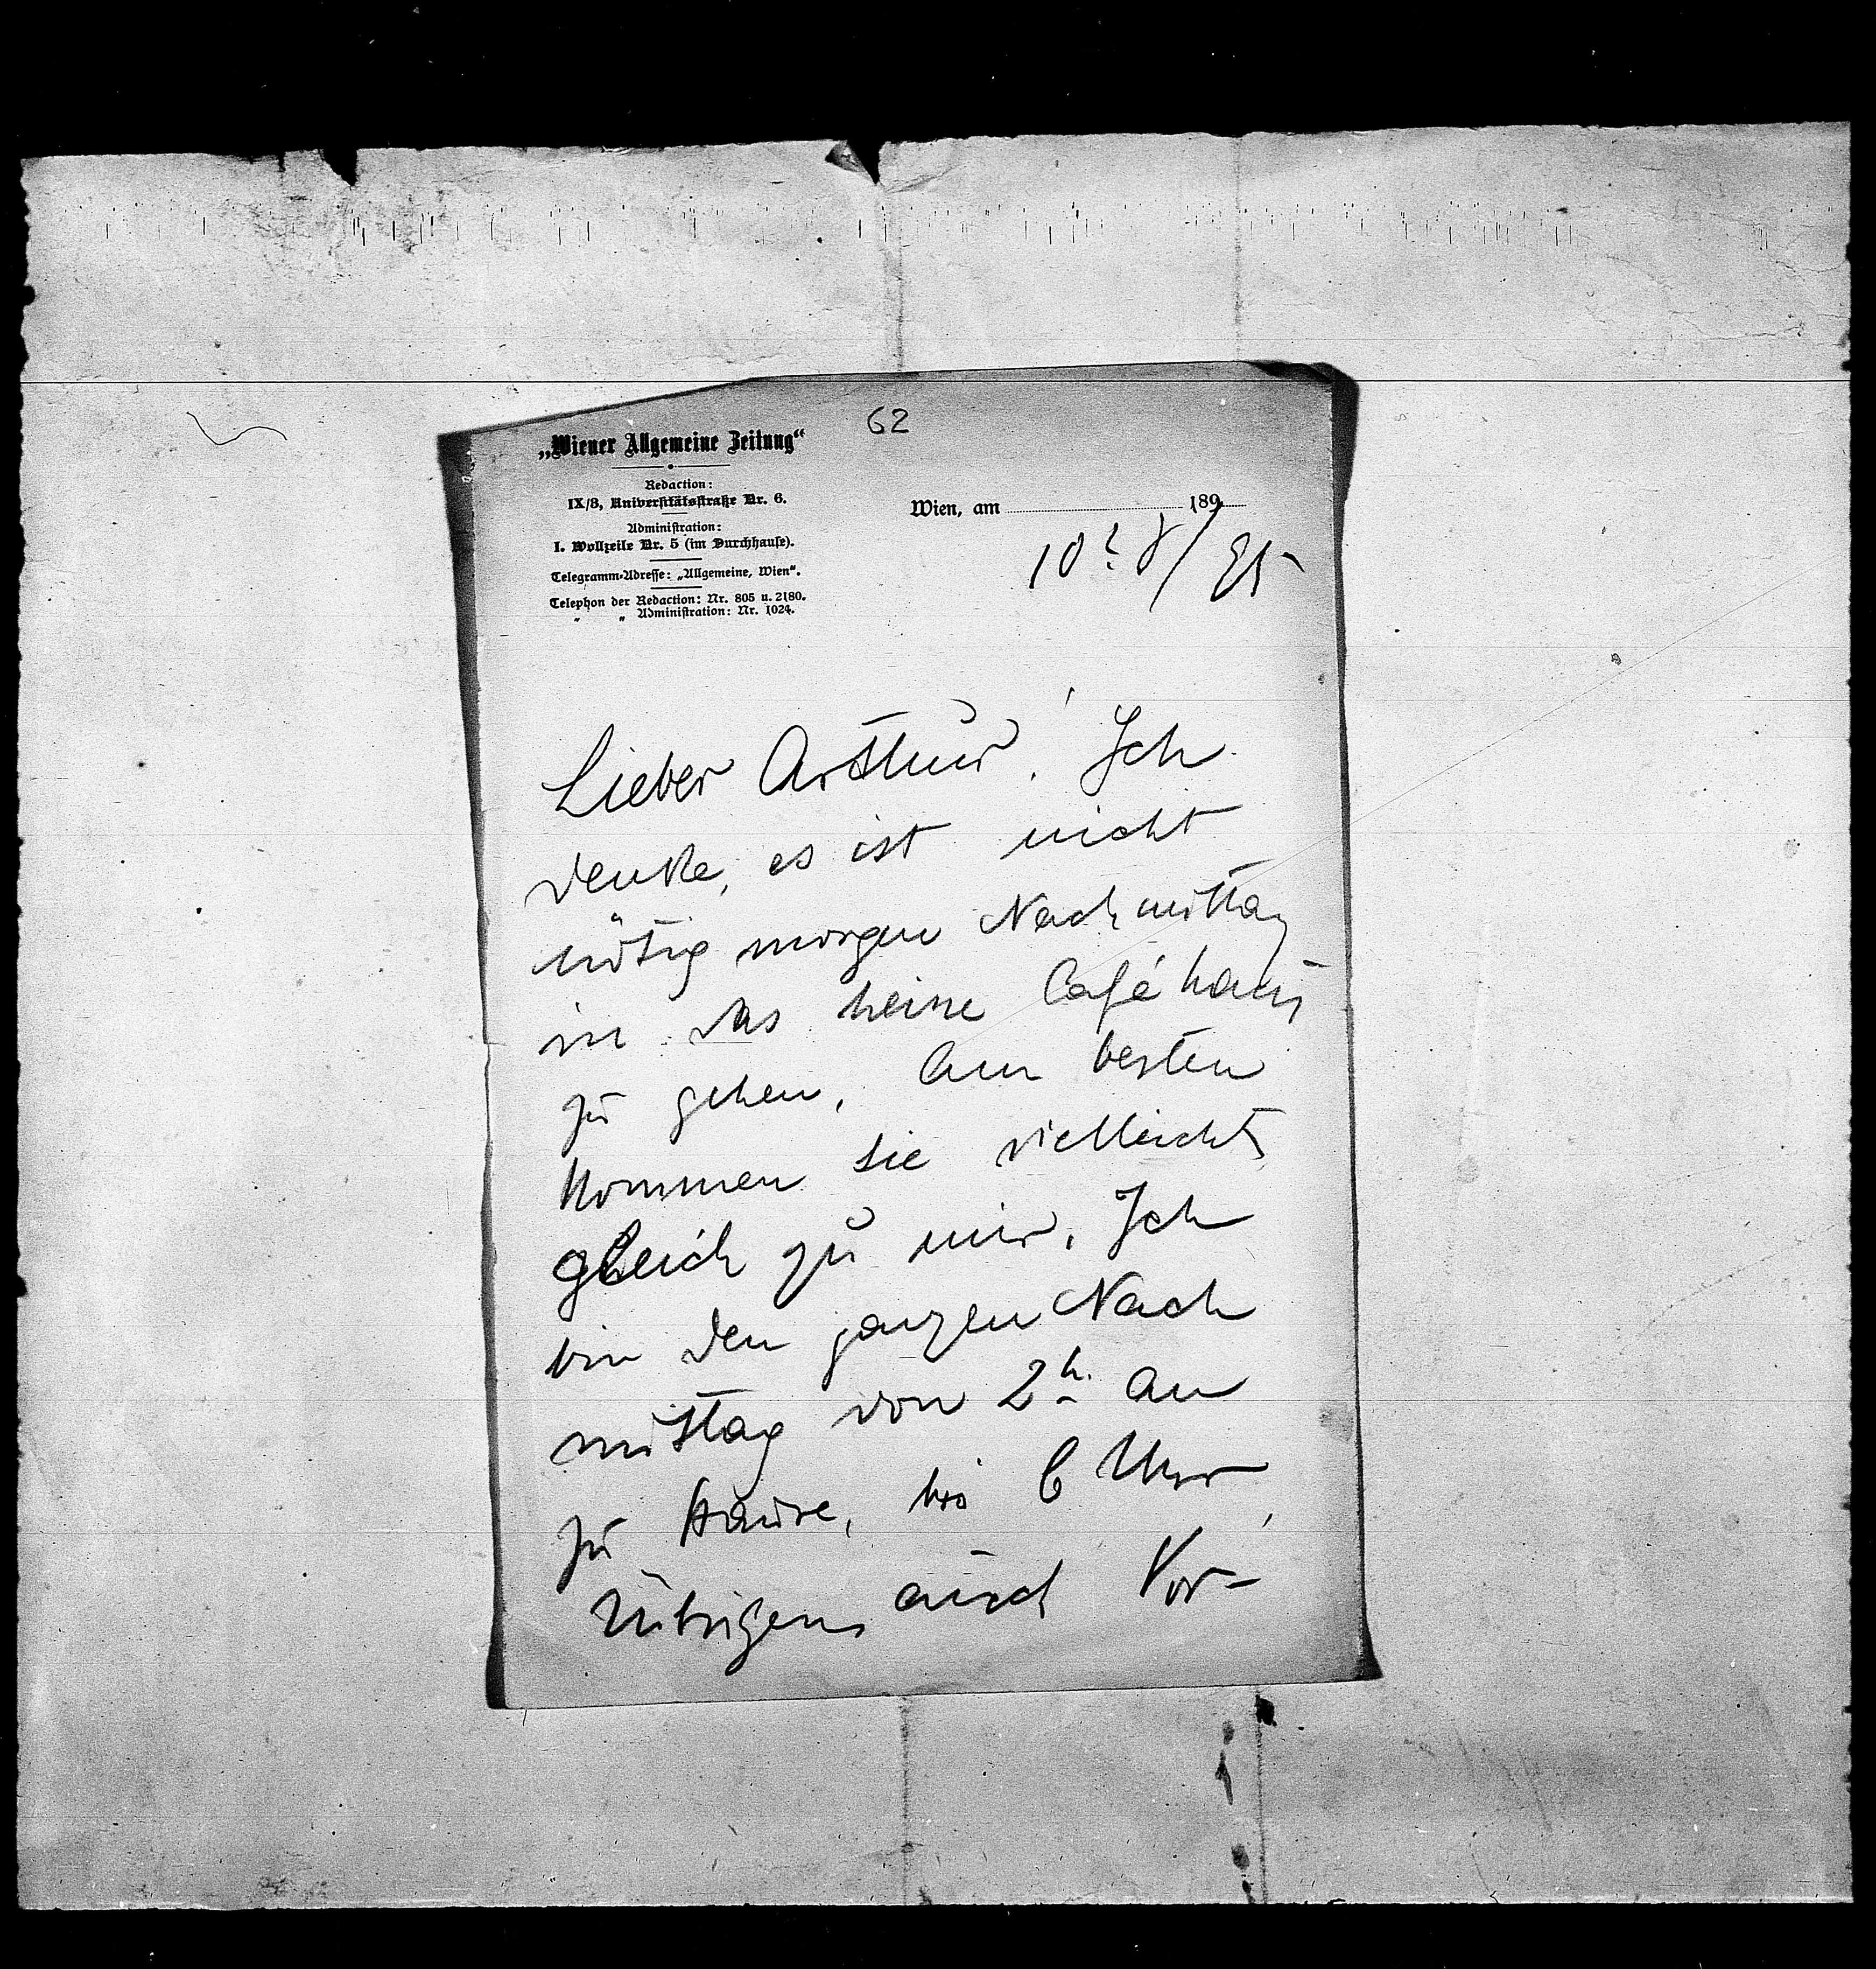 62
„Wiener Allgemeine Zeitung“
Redaction:
IX/3, Universitätsstraße Nr. 6.
Administration:
I. Wollzeile Nr. 5 (im Durchhause).
Telegramm-Adresse: „Allgemeine, Wien“.
Telephon der Redaction: Nr. 805 u. 2180.
„ „ Administration: Nr. 1024.
Wien, am 189
10? 8/95
Lieber Arthur! Ich
denke, es ist nicht
nötig morgen Nachmittag
in das Caféhaus
zu gehen. Am besten
kommen Sie vielleicht
gleich zu mir. Ich
bin den ganzen Nach
mittag von 2h. an
zu Hause, bis 6 Uhr,
übrigens auch Vor-